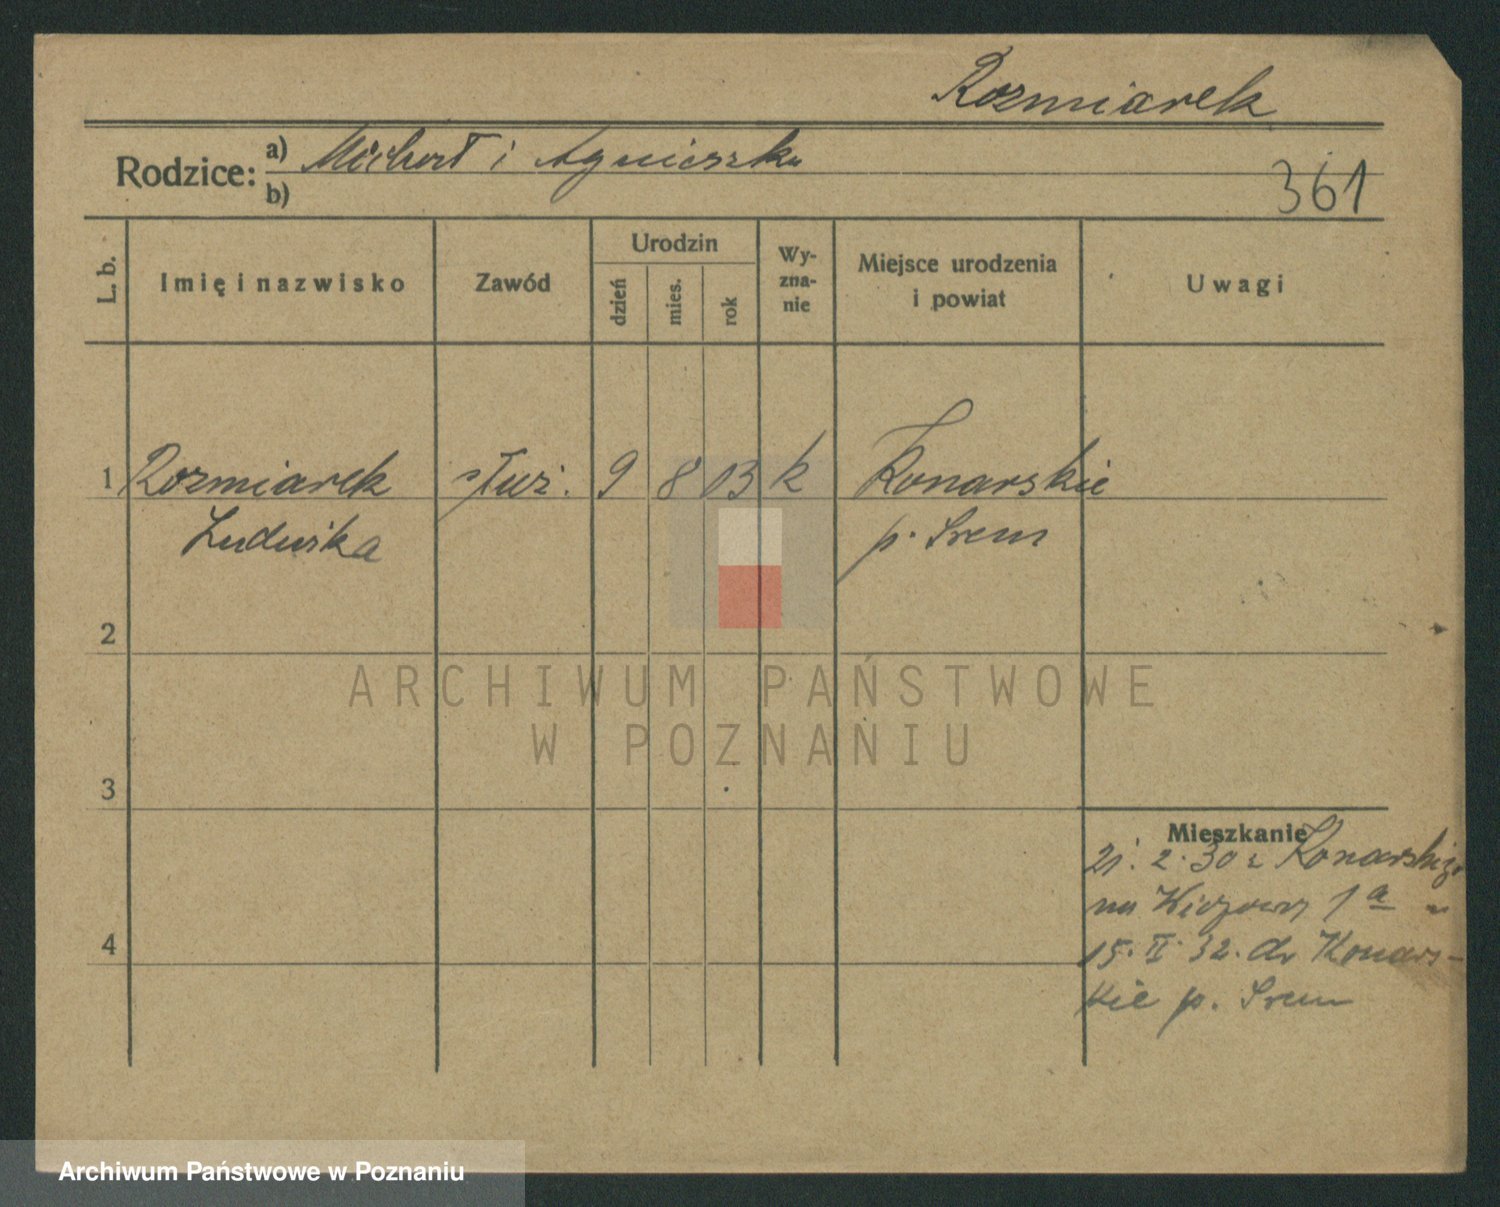 Rozmiarek
Rodzice: a) Michał i Agnieszka
b)
361
L. b.
Imię i nazwisko
Zawód
Urodzin
dzień
mies.
rok
Wy-
zna-
nie
Miejsce urodzenia
i powiat
Uwagi
1 Rozmiarek służ. 9 8 03 k Konarskie
Ludwika p. Srem
2
ARCHIWUM PAŃSTWOWE
W POZNANIU
3
Mieszkanie
21. 2. 30 z Konarskiego
na 1a
15. II. 32. do Konars-
4
kie p. Srem
Archiwum Państwowe w Poznaniu